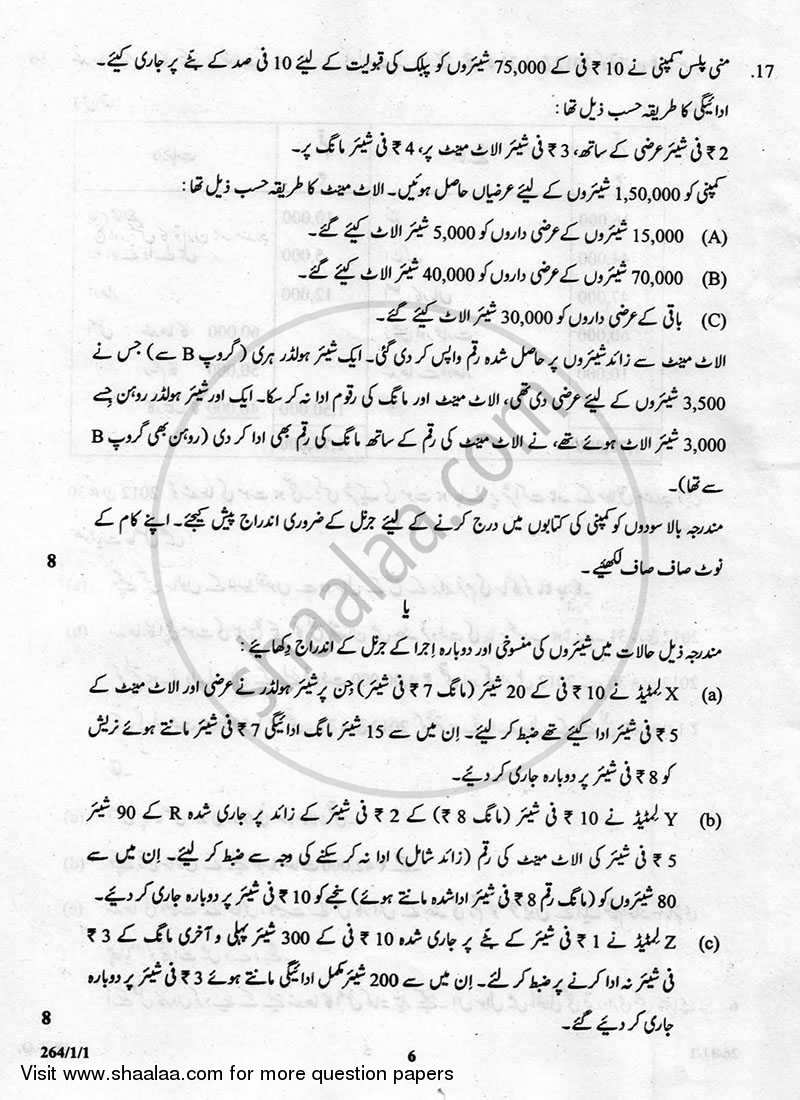 17. منی پلس کمپنی نے 10 ₹ فی کے 75,000 شیئروں کو پبلک کی قبولیت کے لیئے 10 فی صد کے بٹے پر جاری کیئے۔
ادائیگی کا طریقہ حسب ذیل تھا:
2 ₹ فی شیئر عرضی کے ساتھ، 3 ₹ فی شیئر الاٹ مینٹ پر، 4 ₹ فی شیئر مانگ پر۔
کمپنی کو 1,50,000 شیئروں کے لیئے عرضیاں حاصل ہوئیں۔ الاٹ مینٹ کا طریقہ حسب ذیل تھا:
(A) 15,000 شیئروں کے عرضی داروں کو 5,000 شیئر الاٹ کیئے گئے۔
(B) 70,000 شیئروں کے عرضی داروں کو 40,000 شیئر الاٹ کیئے گئے۔
(C) باقی کے عرضی داروں کو 30,000 شیئر الاٹ کیئے گئے۔
الاٹ مینٹ سے زائد شیئروں پر حاصل شدہ رقم واپس کر دی گئی۔ ایک شیئر ہولڈر ہری (گروپ B سے) جس نے
3,500 شیئروں کے لیئے عرضی دی تھی، الاٹ مینٹ اور مانگ کی رقوم ادا نہ کر سکا۔ ایک اور شیئر ہولڈر روہن جسے
3,000 شیئر الاٹ ہوئے تھے، نے الاٹ مینٹ کی رقم کے ساتھ مانگ کی رقم بھی ادا کر دی (روہن بھی گروپ B
سے تھا)۔
مندرجہ بالا سودوں کو کمپنی کی کتابوں میں درج کرنے کے لیئے جرنل کے ضروری اندراج پیش کیجئے۔ اپنے کام کے
نوٹ صاف صاف لکھیئے۔ 8
یا
مندرجہ ذیل حالات میں شیئروں کی منسوخی اور دوبارہ اجرا کے جرنل کے اندراج دکھایئے:
(a) X لمیٹیڈ نے 10 ₹ فی کے 20 شیئر (مانگ 7 ₹ فی شیئر) جن پر شیئر ہولڈر نے عرضی اور الاٹ مینٹ کے
5 ₹ فی شیئر ادا کیئے تھے ضبط کر لیئے۔ ان میں سے 15 شیئر مانگ ادائیگی 7 ₹ فی شیئر مانتے ہوئے نریش
کو 8 ₹ فی شیئر پر دوبارہ جاری کر دیئے۔
(b) Y لمیٹیڈ نے 10 ₹ فی شیئر (مانگ 8 ₹) کے 2 ₹ فی شیئر کے زائد پر جاری شدہ R کے 90 شیئر
5 ₹ فی شیئر کی الاٹ مینٹ کی رقم (زائد شامل) ادا نہ کر سکنے کی وجہ سے ضبط کر لیئے۔ ان میں سے
80 شیئروں کو (مانگ رقم 8 ₹ فی شیئر اداشدہ مانتے ہوئے) سنجے کو 10 ₹ فی شیئر پر دوبارہ جاری کر دیئے۔
(c) Z لمیٹیڈ نے 1 ₹ فی شیئر کے بٹے پر جاری شدہ 10 ₹ فی کے 300 شیئر پہلی و آخری مانگ کے 3 ₹
فی شیئر نہ ادا کرنے پر ضبط کر لئے۔ ان میں سے 200 شیئر مکمل ادائیگی مانتے ہوئے 3 ₹ فی شیئر پر دوبارہ
جاری کر دیئے گئے۔ 8
264/1/1 6
Visit www.shaalaa.com for more question papers
shaalaa.com